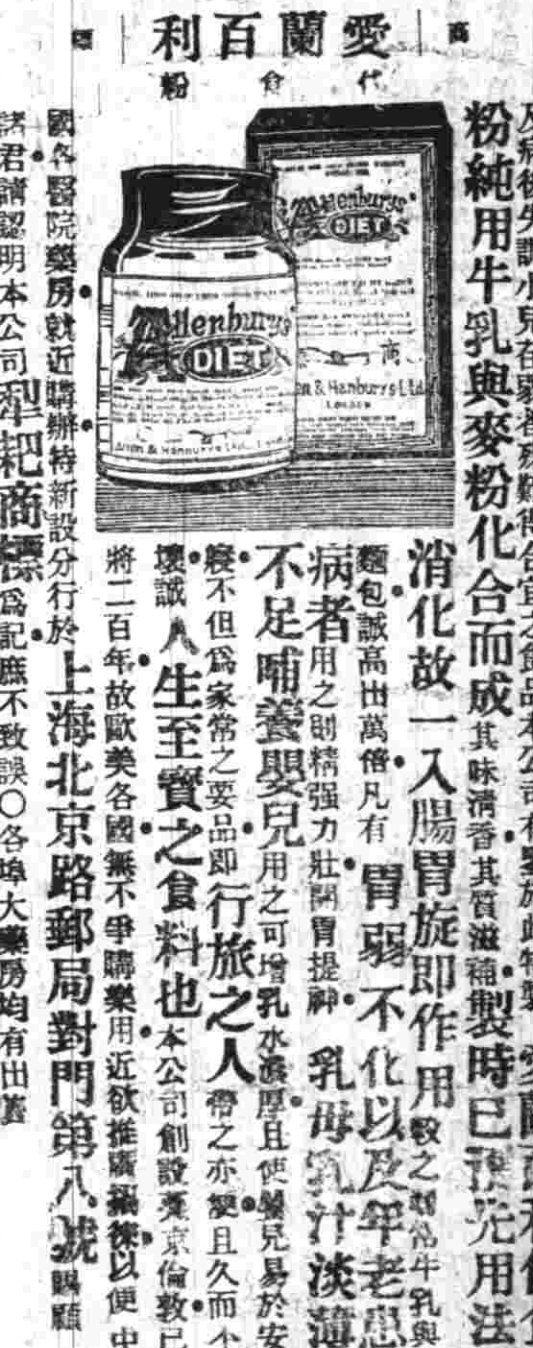 商標
愛蘭百利
代食粉
Allenburys
DIET
Allen & Hanburys Ltd.
LONDON
商
Allenburys
DIET
Allen & Hanburys Ltd., Lond
及病後失調小兒在
粉純用牛乳與麥粉化合而成其味清香其質滋補製時已預先用法
消化故一入腸胃旋即作用較之尋常牛乳與
麵包誠高出萬倍凡有胃弱不化以及年老患
病者用之則精强力壯開胃提神乳母乳汁淡薄
不足哺養嬰兒用之可增乳水濃厚且使嬰兒易於安
寢不但爲家常之要品即行旅之人帶之亦便且久而不
壞誠人生至寶之食料也本公司創設英京倫敦已
將二百年故歐美各國無不爭購樂用近欲推廣以便中
國各醫院藥房就近購辦特新設分行於上海北京路郵局對門第八號賜顧
諸君請認明本公司犁耙商標爲記庶不致誤〇各埠大藥房均有出售